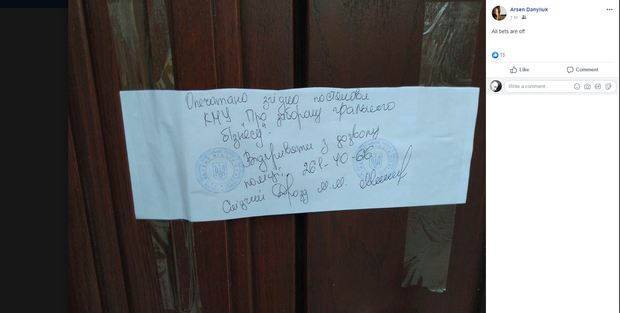 Arsen Danyliuk
1 hr
All bets are off
15
Like
Comment
Write a comment...
Опечатано згідно постанови
КМУ "Про заборону грального
бізнесу".
Відкривати з дозволу
поліції. 261-40-66
Слідчий Дрозд М.М.